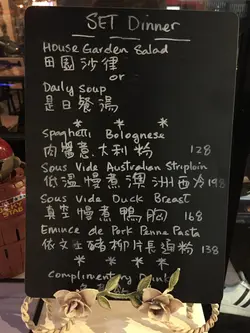 SET Dinner
House Garden Salad
田園沙律
or
Daily Soup
是日餐湯
* * *
Spaghetti Bolognese
肉醬意大利粉 128
Sous Vide Australian Striploin
低溫慢煮澳洲西冷 198
Sous Vide Duck Breast
真空慢煮鴨胸 168
Emince de Pork Penne Pasta
豬柳片長通粉 138
* * * *
Complimentary Drink